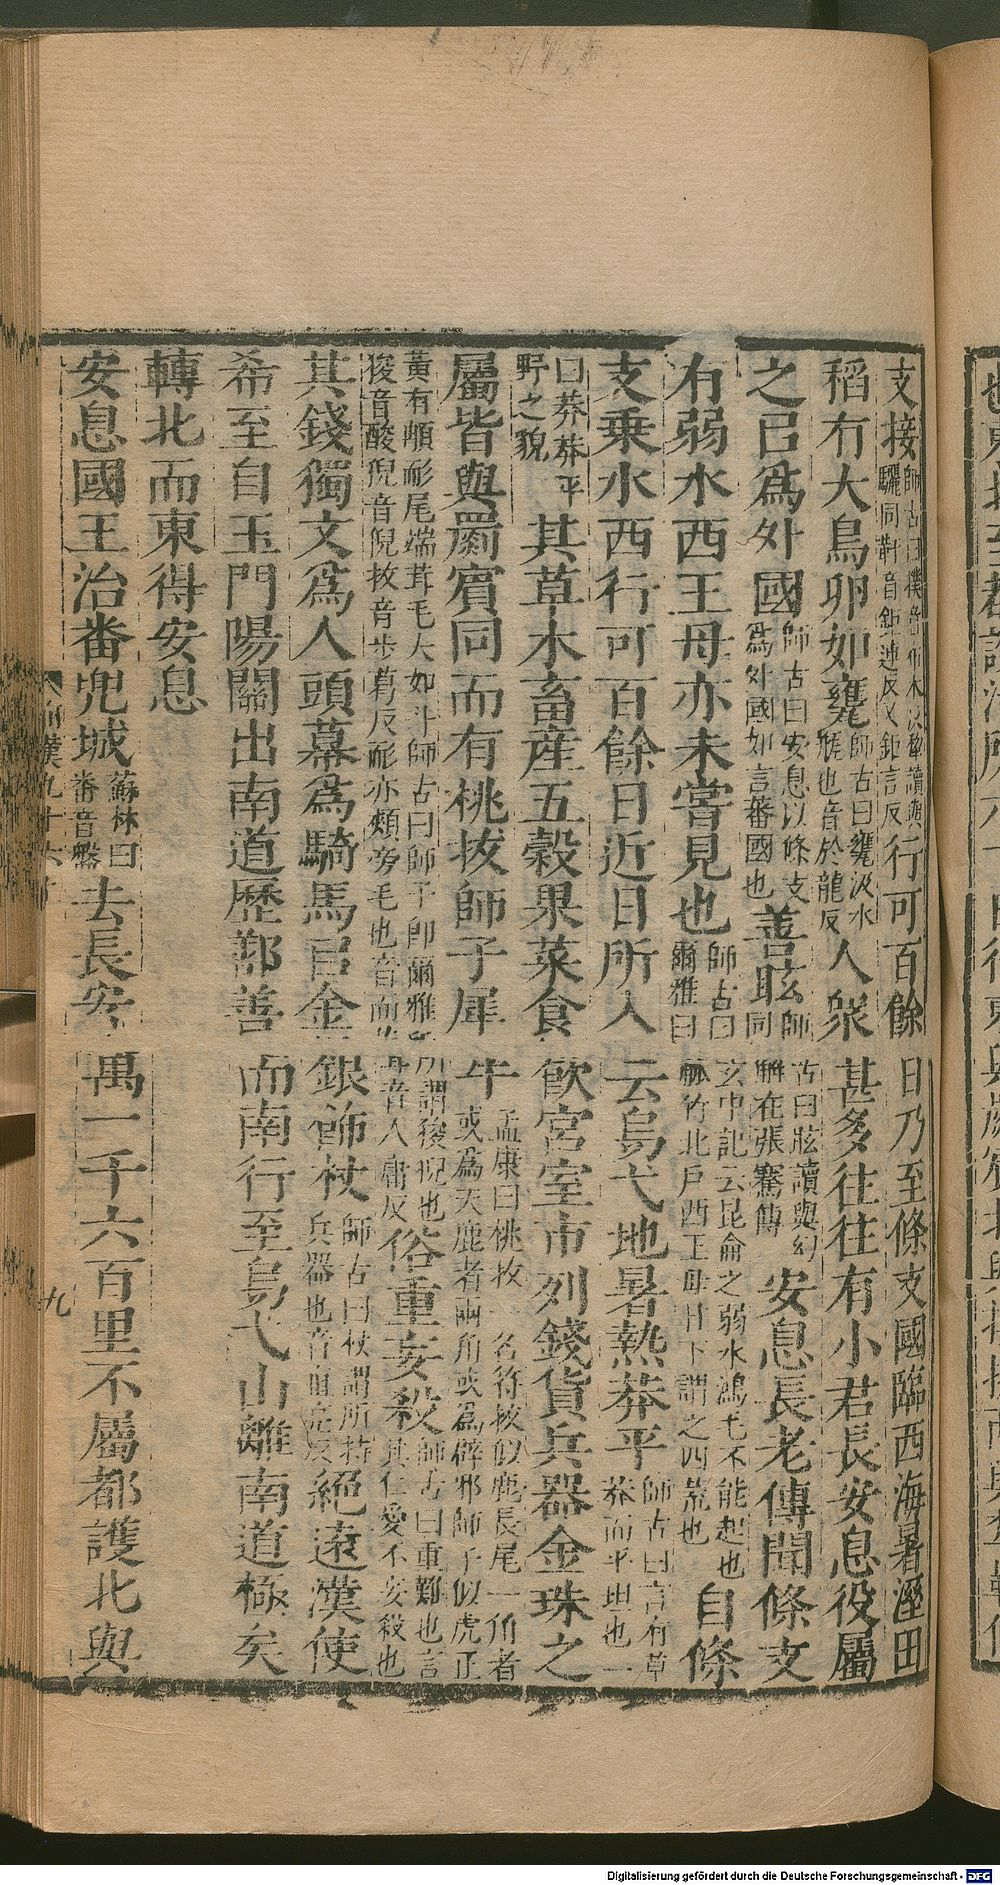 支接師古曰撲音布木反犂讀與驪同靬音鉅連反又鉅言反行可百餘日乃至條支國臨西海暑溼田
稻有大鳥卵如甕師古曰甕汲水缾也音於龍反人衆甚多往往有小君長安息役屬
之已爲外國師古曰安息以條支爲外國如言蕃國也善眩師古曰眩讀與幻同解在張騫傳安息長老傳聞條支
有弱水西王母亦未嘗見也師古曰爾雅曰觚竹北戶西王母日下謂之四荒也玄中記云昆侖之弱水鴻毛不能起也自條
支乗水西行可百餘日近日所入云烏弋地暑熱莽平師古曰言有草莽而平坦也一
曰莽莽平野之貌其草木畜産五穀果菜食飲宮室市列錢貨兵器金珠之
屬皆與罽賓同而有桃拔師子犀牛孟康曰桃拔一名符拔似鹿長尾一角者或爲天鹿者兩角或爲辟邪師子似虎正
黃有䫇耏尾端茸毛大如斗師古曰師子卽爾雅所謂狻猊也狻音酸猊音倪拔音步葛反耏亦頰旁毛也音而茸音人庸反俗重妄殺師古曰重難也言其仁愛不妄殺也
其錢獨文爲人頭幕爲騎馬㠯金銀飾杖師古曰杖謂所持兵器也音直亮反絕遠漢使
希至自玉門陽關出南道歷鄯善而南行至烏弋山離南道極矣
轉北而東得安息
安息國王治番兜城蘇林曰番音盤去長安萬一千六百里不屬都護北與
前漢九十六上
九
Digitalisierung gefördert durch die Deutsche Forschungsgemeinschaft - DFG